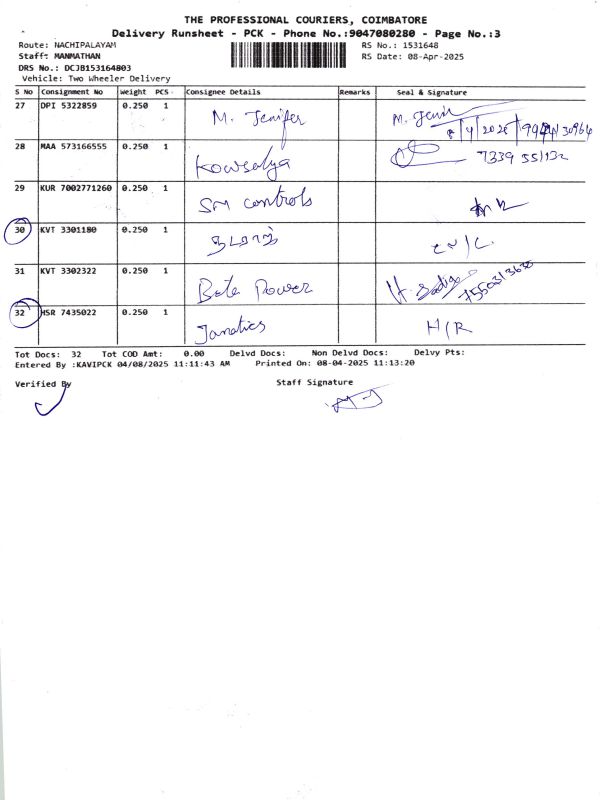 THE PROFESSIONAL COURIERS, COIMBATORE
Delivery Runsheet - PCK - Phone No.:9047080280 - Page No.:3
Route: NACHIPALAYAM RS No.: 1531648
Staff: MANMATHAN RS Date: 08-Apr-2025
DRS No.: DCJB153164803
Vehicle: Two Wheeler Delivery
S No Consignment No Weight PCS Consignee Details Remarks Seal & Signature
27 DPI 5322859 0.250 1 M. Jenifer M. Jenif
28 MAA 573166555 0.250 1 Kowsalya 7339 551132
29 KUR 7002771260 0.250 1 SM controls
30 KVT 3301180 0.250 1
31 KVT 3302322 0.250 1 Beta Power
32 HSR 7435022 0.250 1 Janatics H/R
Tot Docs: 32 Tot COD Amt: 0.00 Delvd Docs: Non Delvd Docs: Delvy Pts:
Entered By :KAVIPCK 04/08/2025 11:11:43 AM Printed On: 08-04-2025 11:13:20
Verified By Staff Signature